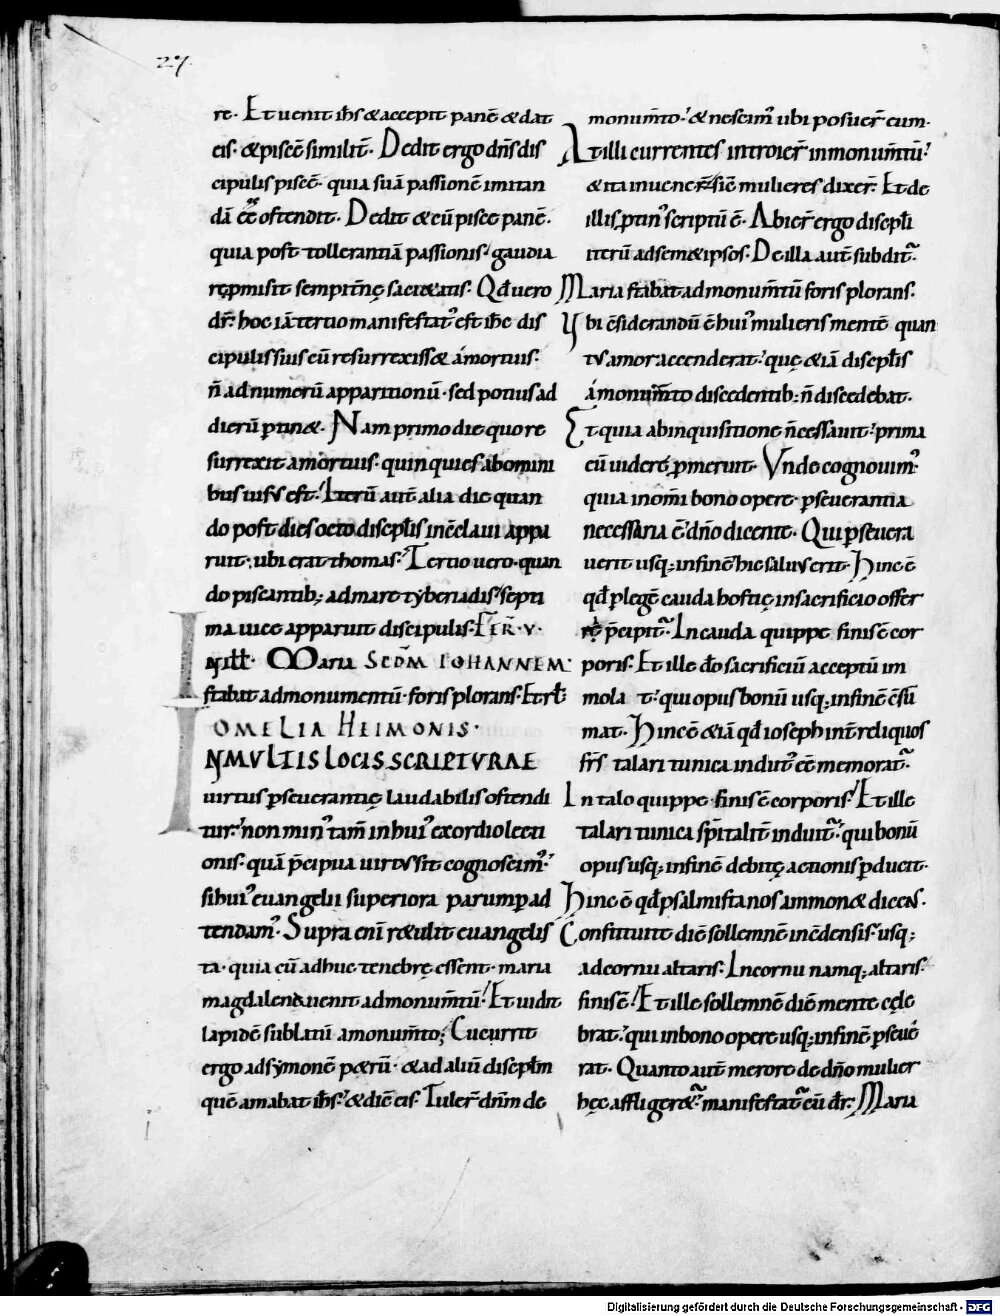 27.
re. Et uenit ihs & accepit panē & dat
eis. & piscē similit̄. Dedit ergo dn̄s dis
cipulis piscē. quia suā passionē imitan
dā eē ostendit. Dedit & cū pisce panē.
quia post tollerantiā passionis. gaudia
repmisit sempitn̄ę sacietatis. Qd̄ uero
dr̄. hoc iā tertio manifestat' est ihc dis
cipulis suis cū resurrexiss& á mortuis.
n̄ ad numerū apparitionū. sed potius ad
dierū ptin&. Nam primo die quo re
surrexit a mortuis. quinquies ab omini
bus uisus est. Iterū aut̄ alia die quan
do post dies octo discipl̄is in ęclaui appa
ruit. ubi erat thomas. Tertio uero. quan
do piscantib; ad mare tyberiadis. septi
ma uice apparuit discipulis. FER̄. V.
IN ill̄. Maria SCDM IOHANNEM.
stabat ad monumentū. foris plorans. Et rl̄.
OMELIA HEIMONIS.
IN MVLTIS LOCIS SCRIPTVRAE
uirtus pseuerantię laudabilis ostendi
tur. non min' tam̄ in hui' exordio lecti
onis. quā p̄cipua uirtus sit cognoscim'.
si hui' euangelii superiora parumpad
tendam'. Supra eni r&ulit euangelis
ta. quia cū adhuc tenebrę essent. maria
magdalene uenit ad monum̄tū. Et uidit
lapidē sublatū a monum̄to. Cucurrit
ergo ad symonē p&rū. & ad aliū discipl̄m
quē amabat ihs. & dic̄ eis. Tuler̄ dn̄m de
monum̄to. & nescim' ubi posuer̄ eum.
At illi currentes introier̄ in monum̄tū.
& ita inuener̄ sic̄ mulieres dixer̄. Et de
illis ptin' scriptū ē. Abier̄ ergo discipl̄i
iterū ad sem&ipsos. De illa aut̄ subdit'.
Maria stabat ad monum̄tū foris plorans.
Vbi c̄siderandū ē hui' mulieris mentē quan
tus amor accenderat. quę &iā discipl̄is
á monum̄to discedentib; n̄ discedebat.
Et quia ab inquisitione n̄ cessauit. prima
eū uidere pmeruit. Vnde cognouim'
quia in om̄i bono opere. pseuerantia
necessaria ē. dn̄o dicente. Qui pseuera
uerit usq; in finē hic saluus erit. Hinc ē
qd̄ p legē cauda hostię in sacrificio offer
re p̄cipit'. In cauda quippe finis ē cor
poris. Et ille do sacrificiū acceptū im
mola t. qui opus bonū usq; in finē c̄sū
mat. Hinc ē &iā qd̄ ioseph int̄ reliquos
fr̄s talari tunica indut' eē memorat'.
In talo quippe finis ē corporis. Et ille
talari tunica sp̄italit̄ induit'. qui bonū
opus usq; in finē debitę actionis pducit.
Hinc ē qd̄ psalmista nos ammon& dicens.
Constituite diē sollemnē in c̄densis. usq;
ad cornu altaris. In cornu namq; altaris.
finis ē. Et ille sollemnē diē mente cęle
brat. qui in bono opere usq; in finē pseue
rat. Quanto aut̄ merore de dn̄o mulier
hęc affliger&'. manifestat' cū dr̄. Maria
Digitalisierung gefördert durch die Deutsche Forschungsgemeinschaft - DFG